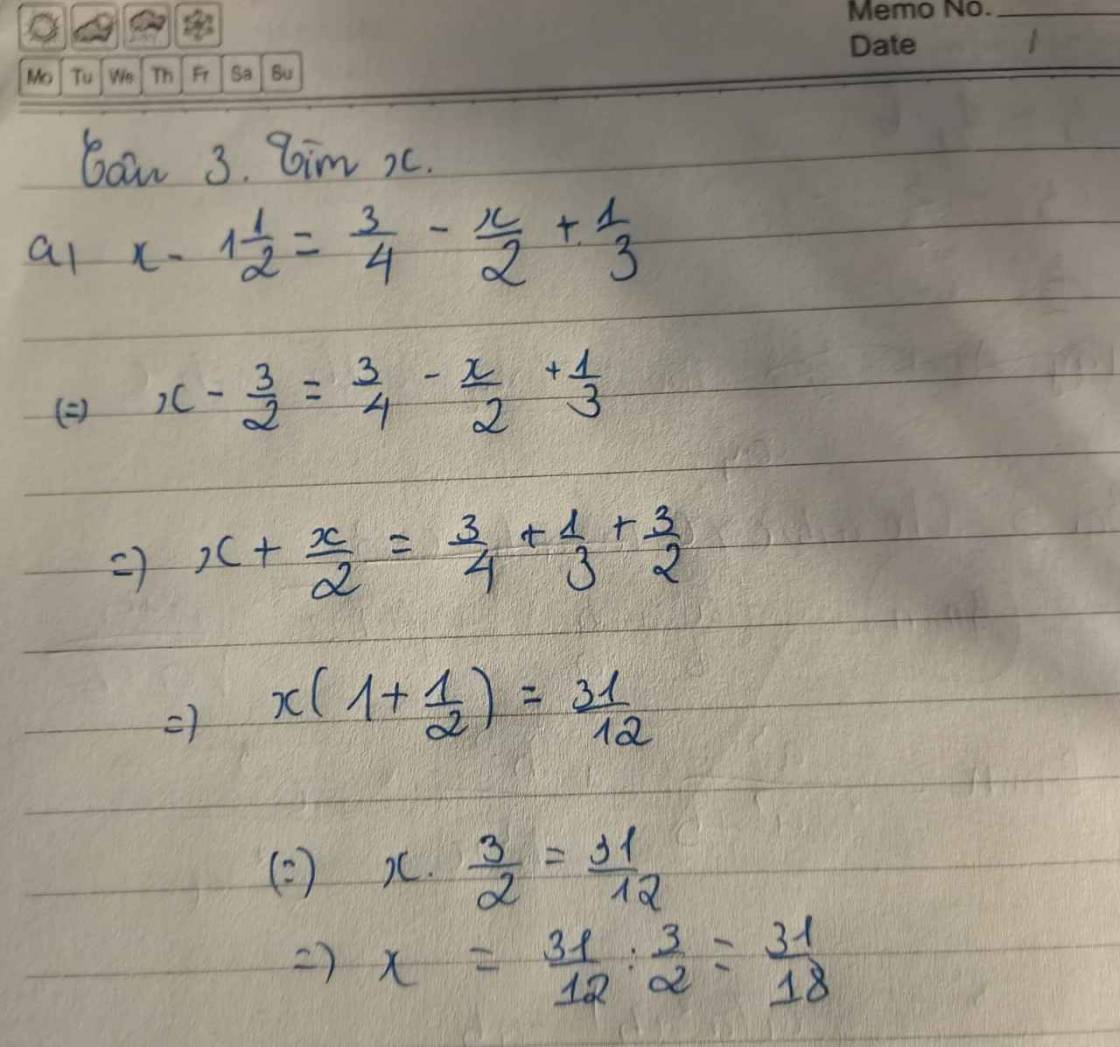 Memo No.
Date /
Mo Tu We Th Fr Sa Su
Câu 3. Tìm x.
a) x - 1 1/2 = 3/4 - x/2 + 1/3
(=) x - 3/2 = 3/4 - x/2 + 1/3
=) x + x/2 = 3/4 + 1/3 + 3/2
=) x( 1 + 1/2 ) = 31/12
(=) x . 3/2 = 31/12
=) x = 31/12 : 3/2 = 31/18